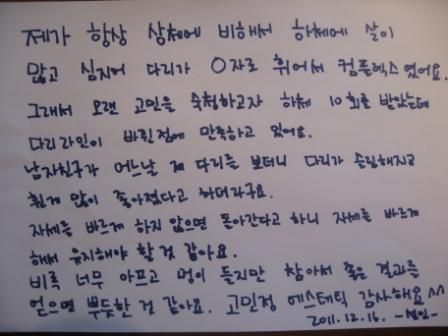 제가 항상 상체에 비해서 하체에 살이
많고 심지어 다리가 O자로 휘어서 컴플렉스였어요.
그래서 오랜 고민을 하고자 하체 10회를 받았는데
다리라인이 바뀐점에 만족하고 있어요.
남자친구가 어느날 제 다리를 보더니 다리가 슬림해지고
훨게 많이 좋아졌다고 하더라구요.
자세를 바르게 하지 않으면 돌아간다고 하니 자세를 바르게
해서 유지해야 할 것 같아요.
비록 너무 아프고 멍이 들지만 참아서 좋은 결과를
얻으면 뿌듯한 것 같아요. 고민정 에스테틱 감사해요^^
2011.12.16.